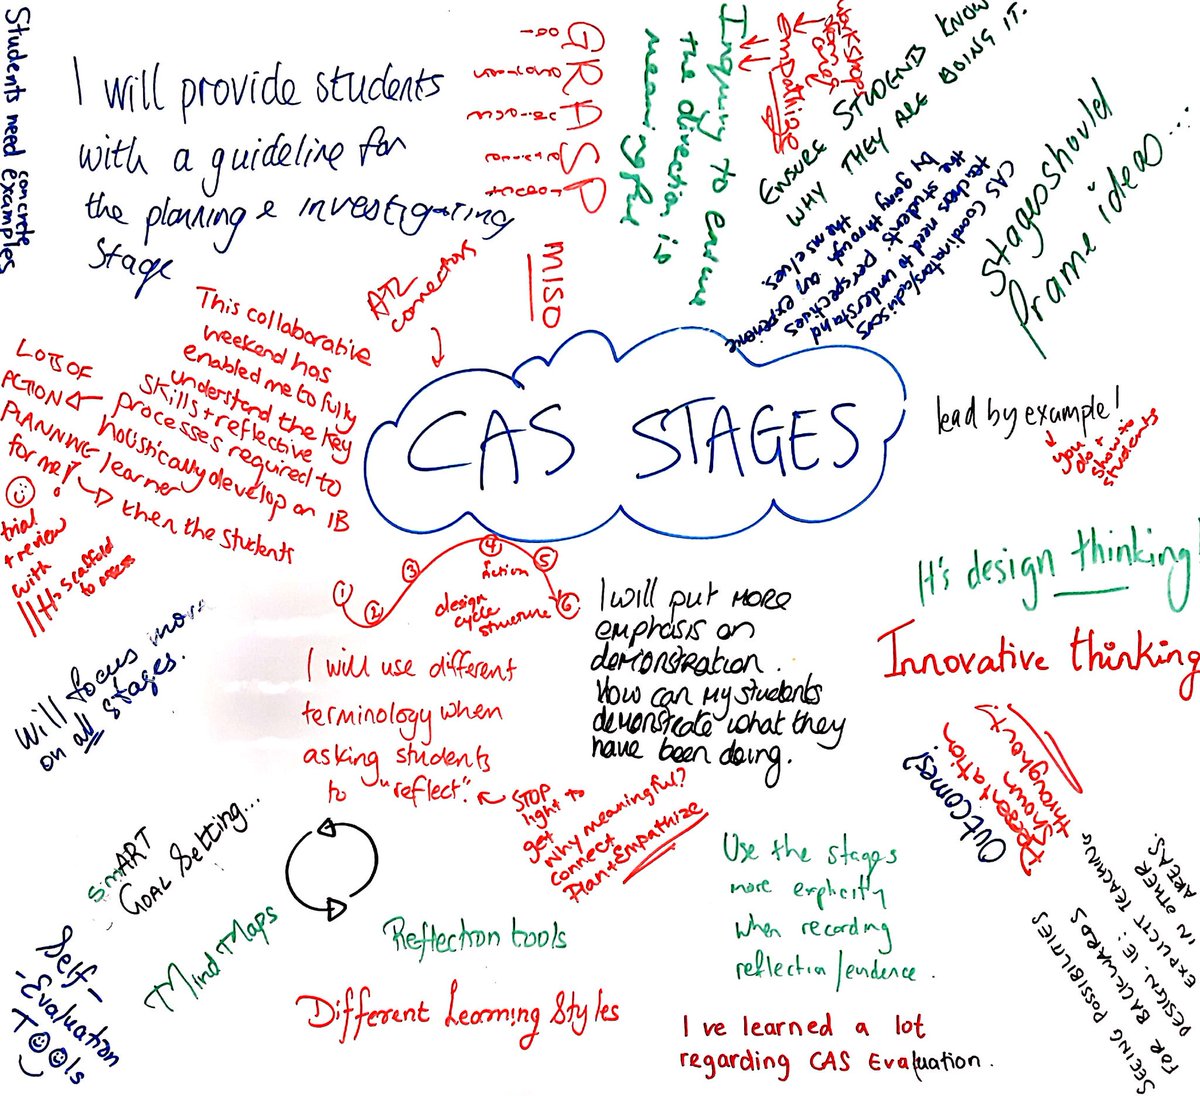 Students need concrete examples
I will provide students
with a guideline for
the planning & investigating
stage
GRASP
Inquiry to endure
the direction is
meaningful
Empathize
ENSURE STUDENTS KNOW
WHY THEY ARE DOING IT.
CAS Coordinators/advisors
teachers need to understand
the students' perspectives
by going through an experience
themselves.
Stages should
frame ideas...
ATL
connectors
MISO
This collaborative
weekend has
enabled me to fully
understand the key
skills + reflective
processes required to
holistically develop an IB
learner
then the students
LOTS OF
ACTION
PLANNING
for me!
trial
+ review
with
scaffold
to assess
CAS STAGES
lead by example!
you do +
show to
students
It's design thinking!
Innovative thinking
1
2
3
4
action
5
6
design
cycle
structure
I will put more
emphasis on
demonstration.
How can my students
demonstrate what they
have been doing.
Will focus more
on all stages.
I will use different
terminology when
asking students
to "reflect".
STOP
light to
get
Why meaningful?
connect
Plan + Empathize
Outcomes?
Presentation
shown
throughout!
SMART
GOAL Setting...
Mind Maps
Reflection tools
Use the stages
more explicitly
when recording
reflection/evidence.
SEEING POSSIBILITIES
FOR BACKWARDS
DESIGN. IE:
EXPLICIT TEACHING
IN OTHER
AREAS.
Self-
-Evaluation
Tools
Different Learning Styles
I've learned a lot
regarding CAS Evaluation.